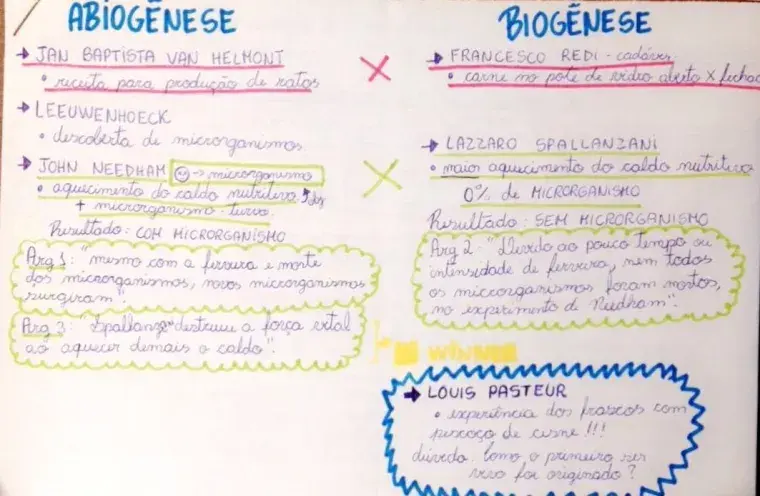 ABIOGÊNESE
→ JAN BAPTISTA VAN HELMONT
• receita para produção de ratos
→ LEEUWENHOECK
• descoberta de microrganismos
→ JOHN NEEDHAM → microrganismo
• aquecimento do caldo nutritivo
+ microrganismo
Resultado: COM MICRORGANISMO
Arg 1: "mesmo com a fervura e morte
dos microrganismos, novos microrganismos
surgiram".
Arg 3: destruiu a força vital
ao aquecer demais o caldo".
BIOGÊNESE
→ FRANCESCO REDI - cadáver
• carne no pote de vidro aberto X fechado
→ LAZZARO SPALLANZANI
• maior aquecimento do caldo nutritivo
0% de MICRORGANISMO
Resultado: SEM MICRORGANISMO
Arg 2 - "Devido ao pouco tempo ou
intensidade de fervura, nem todos
os microrganismos foram mortos,
no experimento de Needham".
WINNER
→ LOUIS PASTEUR
• experiência dos frascos com
pescoço de cisne!!!
dúvida. Como o primeiro ser
vivo foi originado?